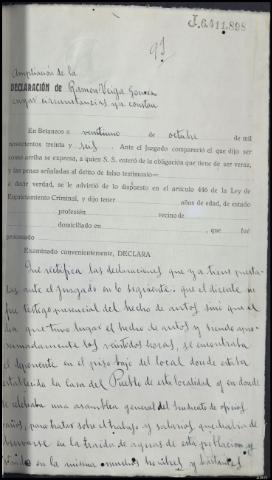 J.6411.808
91
Ampliación de la
DECLARACIÓN de Ramón Veiga
cuyas circunstancias ya constan
En Betanzos a veintiuno de octubre de mil
novecientos treinta y seis. Ante el Juzgado compareció el que dijo ser
como arriba se expresa, a quien S. S. enteró de la obligación que tiene de ser veraz,
y las penas señaladas al delito de falso testimonio
a decir verdad, se le advirtió de lo dispuesto en el artículo 446 de la Ley de
Enjuiciamiento Criminal, y dijo tener años de edad, de estado
profesión vecino de
domiciliado en , que fué
procesado
Examinado convenientemente, DECLARA
Que rectifica las declaraciones que ya tiene presta-
das ante el Juzgado en lo siguiente: que el dicente no
fue testigo presencial del hecho de autos sino que el
día que tuvo lugar el hecho de autos y siendo apro-
ximadamente las veintidos horas, se encontraba
el deponente en el piso bajo del local donde estaba
establecida la Casa del Pueblo de esta localidad y en donde
se celebraba una asamblea general del Sindicato de oficios
varios, para tratar sobre el trabajo y salarios que había de
en la traida de aguas de esta poblacion y
en la misma muchos hombres y bastantes